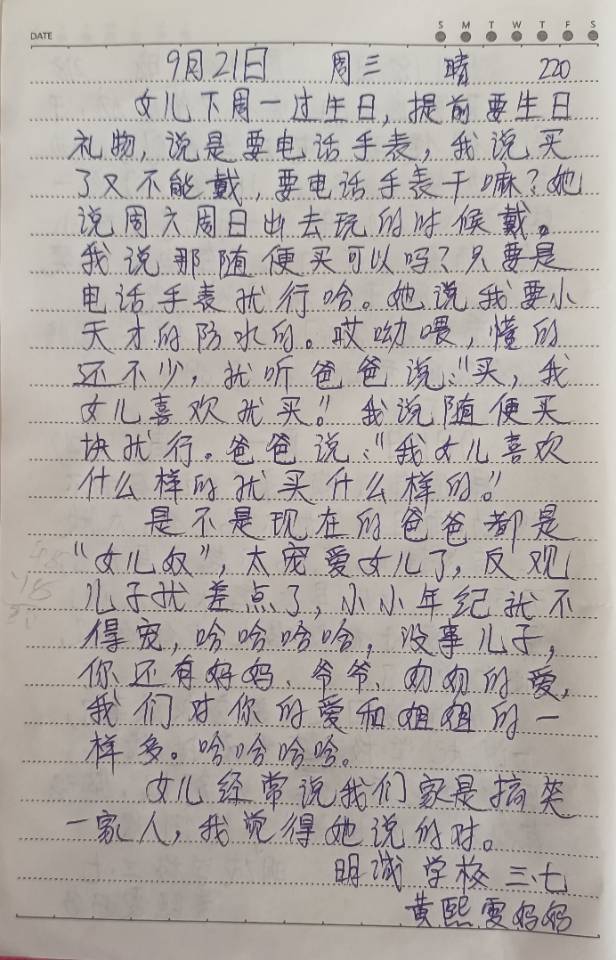 DATE
S M T W T F S
9月21日 周三 晴 220
女儿下周一过生日，提前要生日
礼物，说是要电话手表，我说买
了又不能戴，要电话手表干嘛？她
说周六周日出去玩的时候戴。
我说那随便买可以吗？只要是
电话手表就行哈。她说我要小
天才的防水的。哎呦喂，懂的
还不少，就听爸爸说：“买，我
女儿喜欢就买！” 我说随便买
块就行。爸爸说：“我女儿喜欢
什么样的就买什么样的！”
是不是现在的爸爸都是
“女儿奴”，太宠爱女儿了，反观
儿子就差点了，小小年纪就不
得宠，哈哈哈哈，没事儿子，
你还有好妈、爷爷、奶奶的爱，
我们对你的爱和姐姐的一
样多。哈哈哈哈。
女儿经常说我们家是搞笑
一家人，我觉得她说的对。
明诚学校 三、七
黄熙雯妈妈